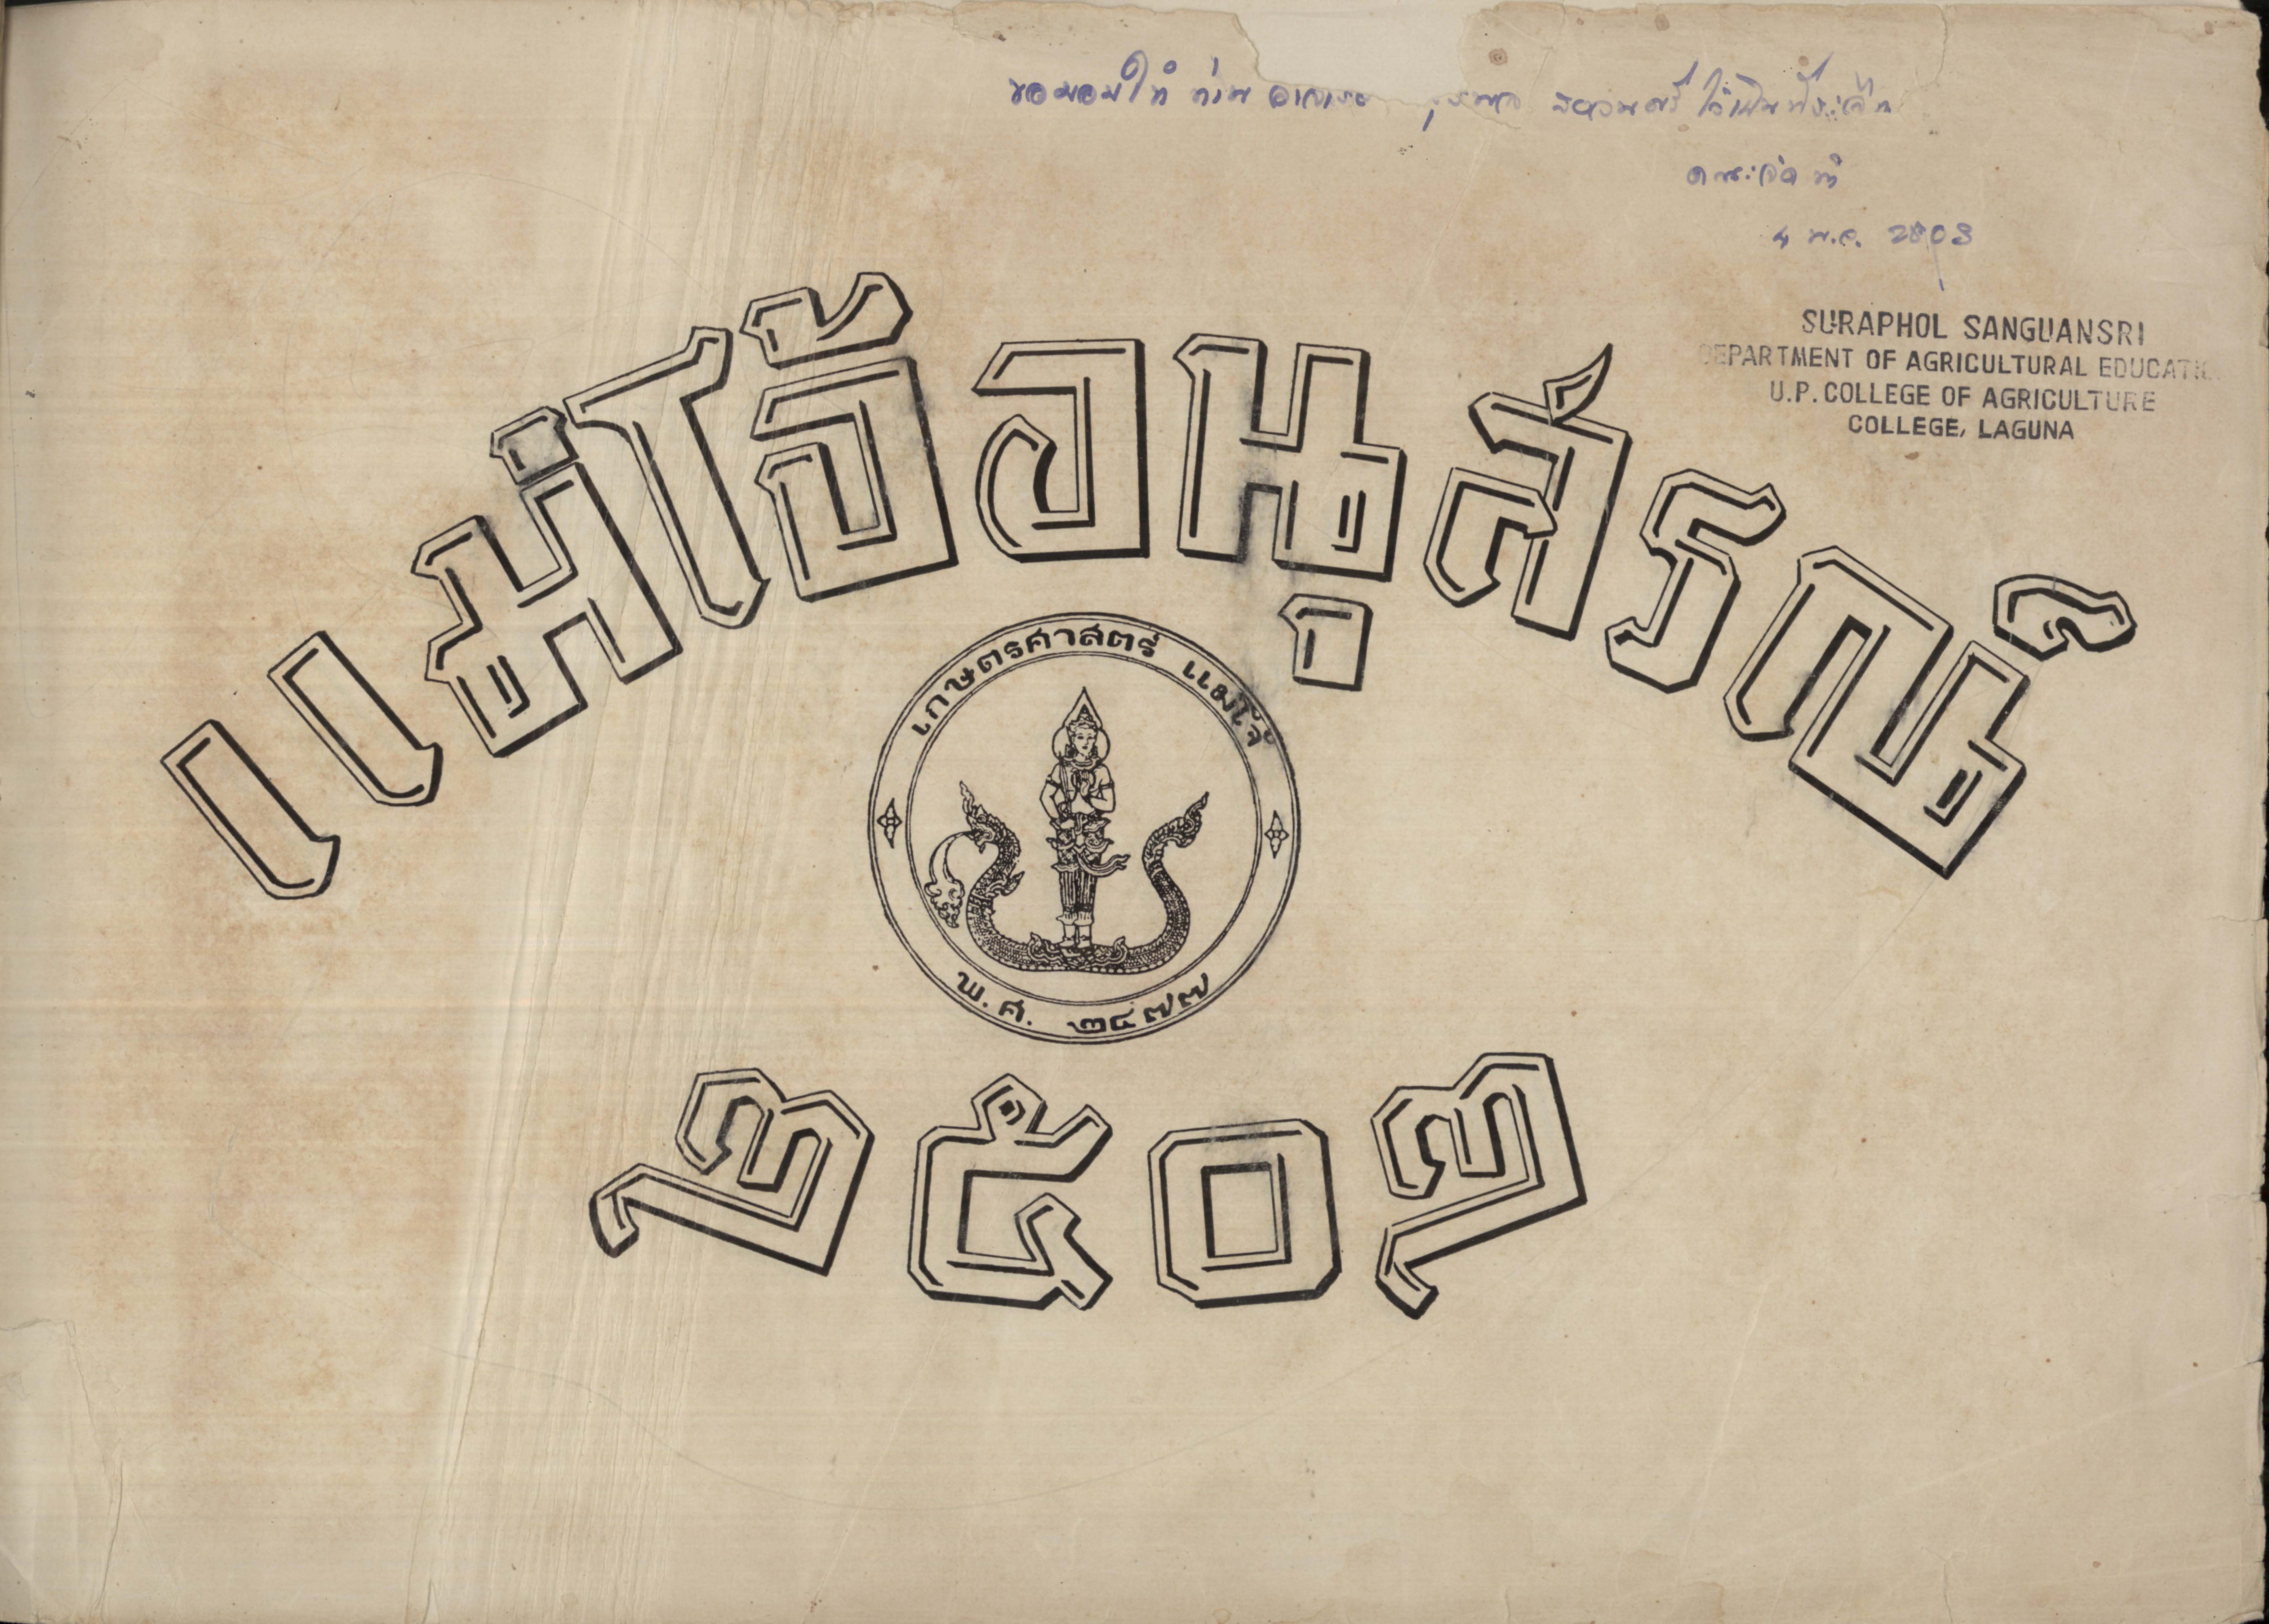 ขอมอบให้ ท่าน อาจารย์ สุรพล สงวนศรี ไว้เป็นที่ระลึก
4 พ.ค. 2503
SURAPHOL SANGUANSRI
DEPARTMENT OF AGRICULTURAL EDUCATI
U.P. COLLEGE OF AGRICULTURE
COLLEGE, LAGUNA
แม่โจ้อนุสรณ์
เกษตรศาสตร์ แม่โจ้
พ.ศ. ๒๔๗๗
๒๕๐๒